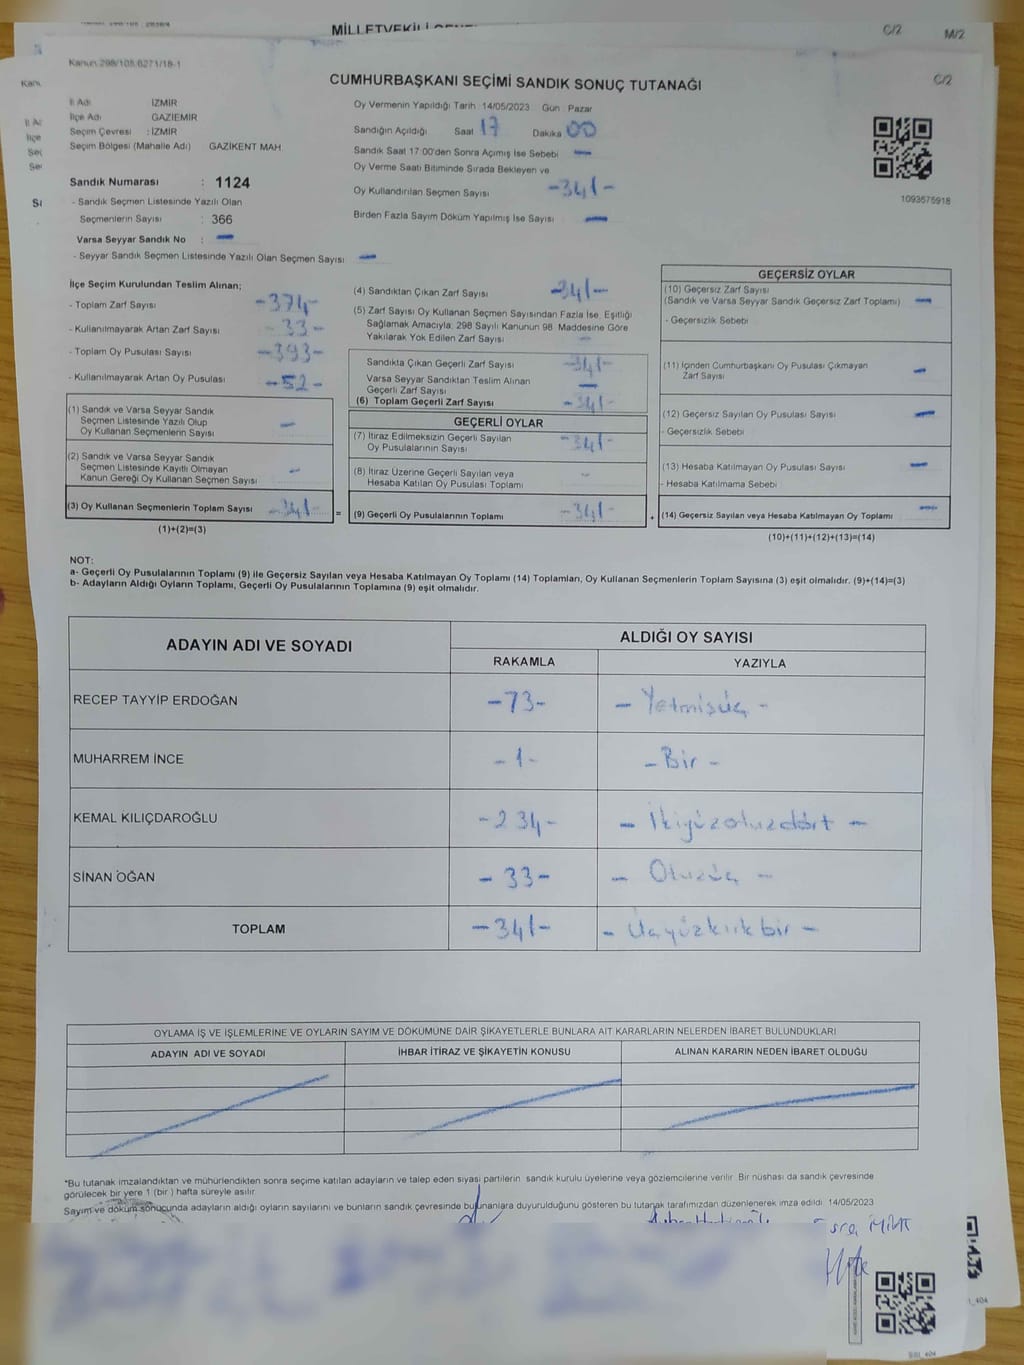 MİLLETVEKİLİ
C/2
M/2
Kanun 298/105,6271/18-1
C/2
CUMHURBAŞKANI SEÇİMİ SANDIK SONUÇ TUTANAĞI
İl Adı İZMİR
İlçe Adı GAZİEMİR
Seçim Çevresi : İZMİR
Seçim Bölgesi (Mahalle Adı) GAZİKENT MAH.
Sandık Numarası : 1124
- Sandık Seçmen Listesinde Yazılı Olan
Seçmenlerin Sayısı : 366
Varsa Seyyar Sandık No : -
- Seyyar Sandık Seçmen Listesinde Yazılı Olan Seçmen Sayısı -
Oy Vermenin Yapıldığı Tarih : 14/05/2023 Gün : Pazar
Sandığın Açıldığı Saat 17 Dakika 00
Sandık Saat 17:00'den Sonra Açımış İse Sebebi -
Oy Verme Saati Bitiminde Sırada Bekleyen ve
Oy Kullandırılan Seçmen Sayısı -341-
Birden Fazla Sayım Döküm Yapılmış İse Sayısı -
1093575918
İlçe Seçim Kurulundan Teslim Alınan;
- Toplam Zarf Sayısı -374-
- Kullanılmayarak Artan Zarf Sayısı -33-
- Toplam Oy Pusulası Sayısı -393-
- Kullanılmayarak Artan Oy Pusulası -52-
(1) Sandık ve Varsa Seyyar Sandık
Seçmen Listesinde Yazılı Olup
Oy Kullanan Seçmenlerin Sayısı -
(2) Sandık ve Varsa Seyyar Sandık
Seçmen Listesinde Kayıtlı Olmayan
Kanun Gereği Oy Kullanan Seçmen Sayısı -
(3) Oy Kullanan Seçmenlerin Toplam Sayısı -341-
(1)+(2)=(3)
=
(4) Sandıktan Çıkan Zarf Sayısı -341-
(5) Zarf Sayısı Oy Kullanan Seçmen Sayısından Fazla İse, Eşitliği
Sağlamak Amacıyla; 298 Sayılı Kanunun 98. Maddesine Göre
Yakılarak Yok Edilen Zarf Sayısı -
Sandıkta Çıkan Geçerli Zarf Sayısı -341-
Varsa Seyyar Sandıktan Teslim Alınan
Geçerli Zarf Sayısı -
(6) Toplam Geçerli Zarf Sayısı -341-
GEÇERLİ OYLAR
(7) İtiraz Edilmeksizin Geçerli Sayılan
Oy Pusulalarının Sayısı -341-
(8) İtiraz Üzerine Geçerli Sayılan veya
Hesaba Katılan Oy Pusulası Toplamı -
(9) Geçerli Oy Pusulalarının Toplamı -341-
+
GEÇERSİZ OYLAR
(10) Geçersiz Zarf Sayısı
(Sandık ve Varsa Seyyar Sandık Geçersiz Zarf Toplamı) -
- Geçersizlik Sebebi
(11) İçinden Cumhurbaşkanı Oy Pusulası Çıkmayan
Zarf Sayısı -
(12) Geçersiz Sayılan Oy Pusulası Sayısı -
- Geçersizlik Sebebi
(13) Hesaba Katılmayan Oy Pusulası Sayısı -
- Hesaba Katılmama Sebebi
(14) Geçersiz Sayılan veya Hesaba Katılmayan Oy Toplamı -
(10)+(11)+(12)+(13)=(14)
NOT:
a- Geçerli Oy Pusulalarının Toplamı (9) ile Geçersiz Sayılan veya Hesaba Katılmayan Oy Toplamı (14) Toplamları, Oy Kullanan Seçmenlerin Toplam Sayısına (3) eşit olmalıdır. (9)+(14)=(3)
b- Adayların Aldığı Oyların Toplamı, Geçerli Oy Pusulalarının Toplamına (9) eşit olmalıdır.
ADAYIN ADI VE SOYADI ALDIĞI OY SAYISI
RAKAMLA YAZIYLA
RECEP TAYYİP ERDOĞAN -73- - Yetmişüç -
MUHARREM İNCE -1- -Bir -
KEMAL KILIÇDAROĞLU -234- - İkiyüzotuzdört -
SİNAN OĞAN -33- - Otuzüç -
TOPLAM -341- - Üçyüzkırkbir -
OYLAMA İŞ VE İŞLEMLERİNE VE OYLARIN SAYIM VE DÖKÜMÜNE DAİR ŞİKAYETLERLE BUNLARA AİT KARARLARIN NELERDEN İBARET BULUNDUKLARI
ADAYIN ADI VE SOYADI İHBAR İTİRAZ VE ŞİKAYETİN KONUSU ALINAN KARARIN NEDEN İBARET OLDUĞU
*Bu tutanak imzalandıktan ve mühürlendikten sonra seçime katılan adayların ve talep eden siyasi partilerin sandık kurulu üyelerine veya gözlemcilerine verilir. Bir nüshası da sandık çevresinde
görülecek bir yere 1 (bir ) hafta süreyle asılır
Sayım ve döküm sonucunda adayların aldığı oyların sayılarını ve bunların sandık çevresinde bulunanlara duyurulduğunu gösteren bu tutanak tarafımızdan düzenlenerek imza edildi. 14/05/2023